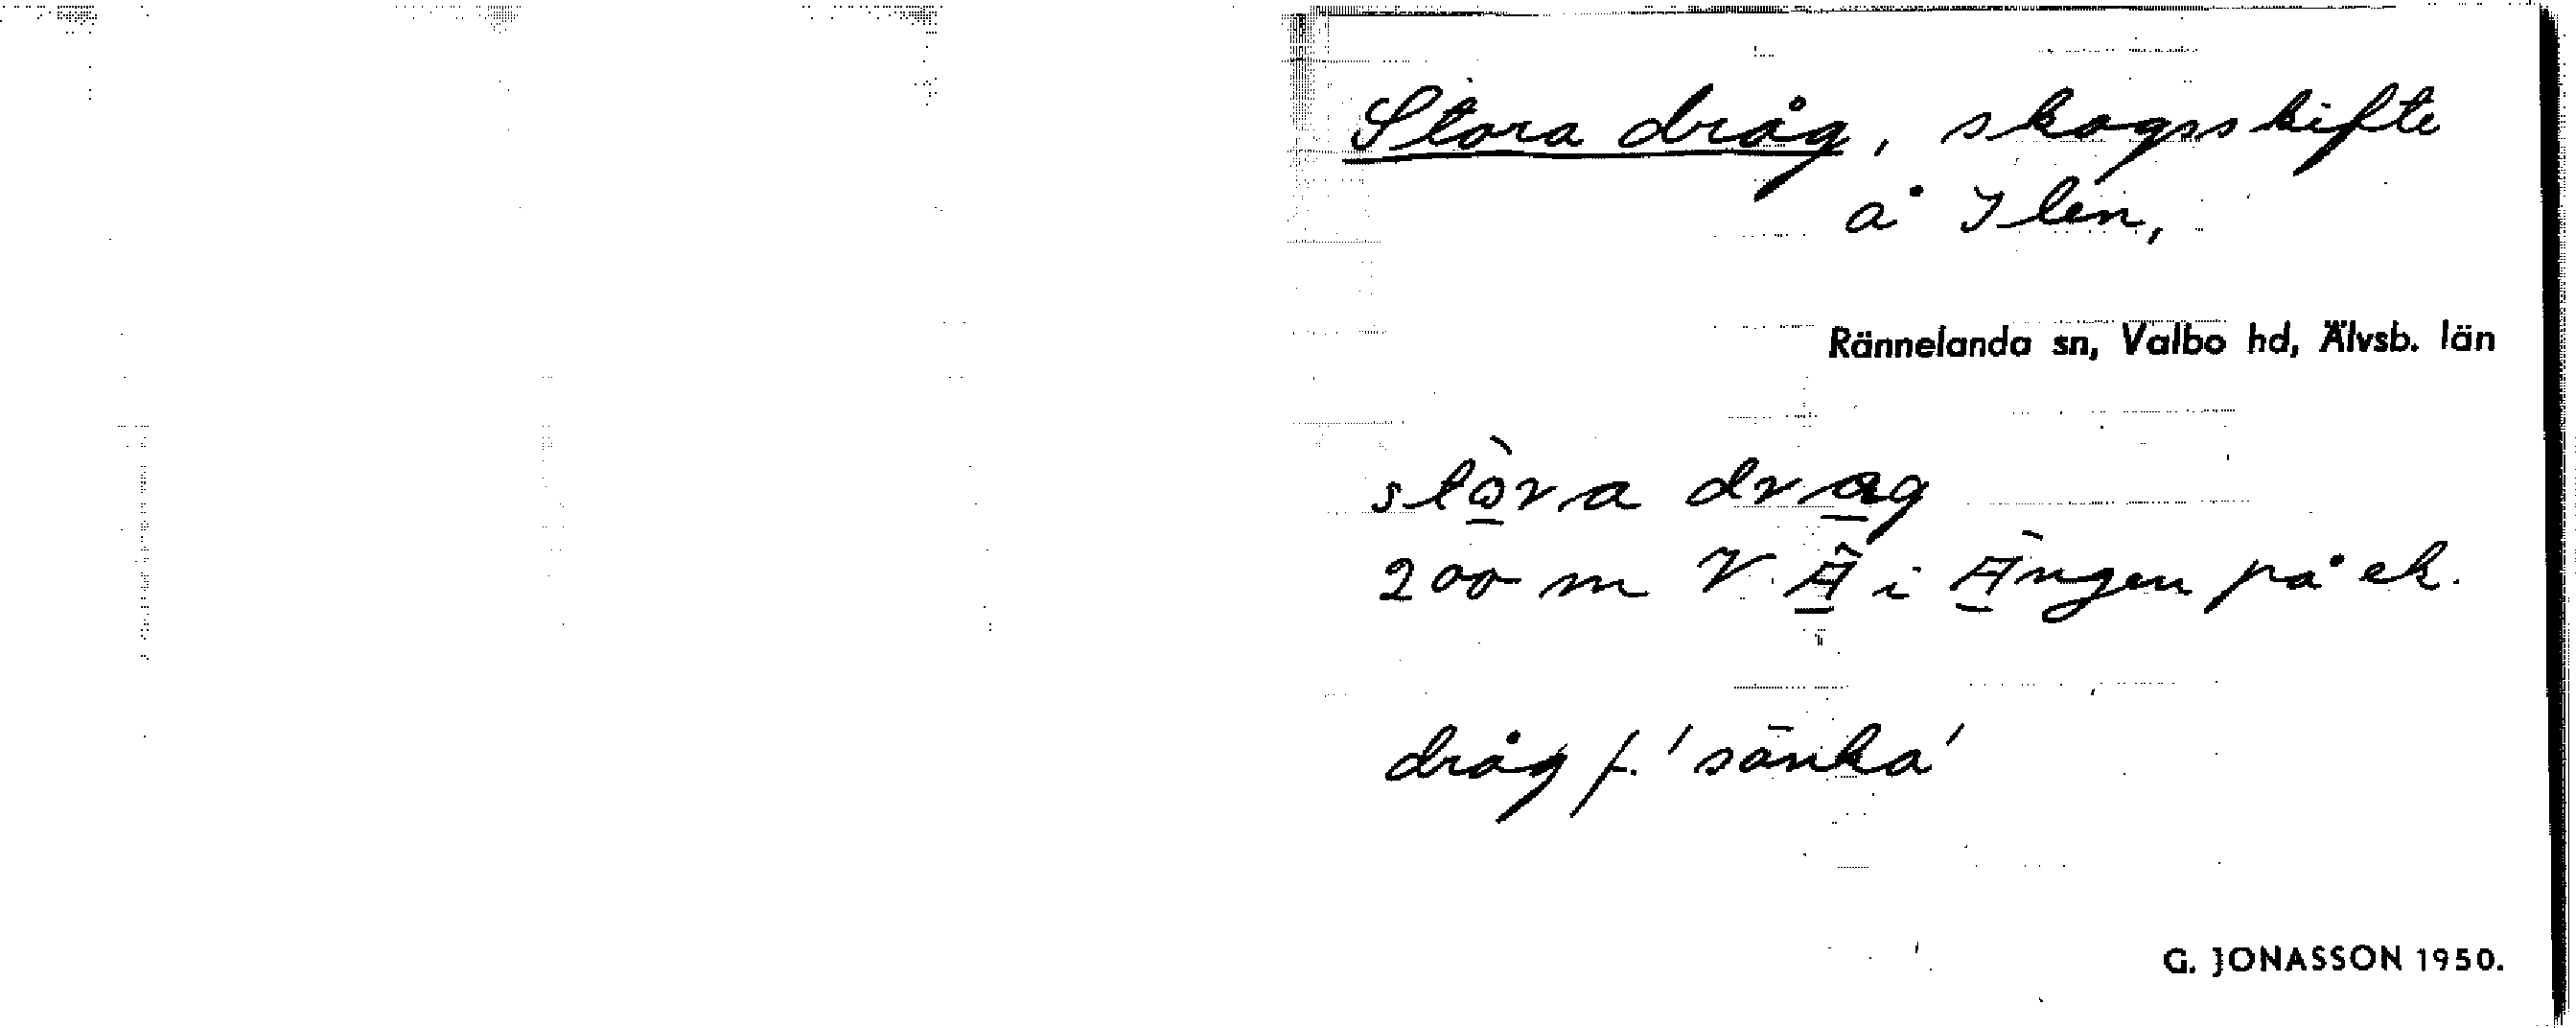 Stora dråg, skogsskifte
å Ilen,
Rännelanda sn, Valbo hd, Älvsb. län
stòra dræg
200 m V. Ä i Ängen på ek.
dråg f. 'sänka'
G. JONASSON 1950.